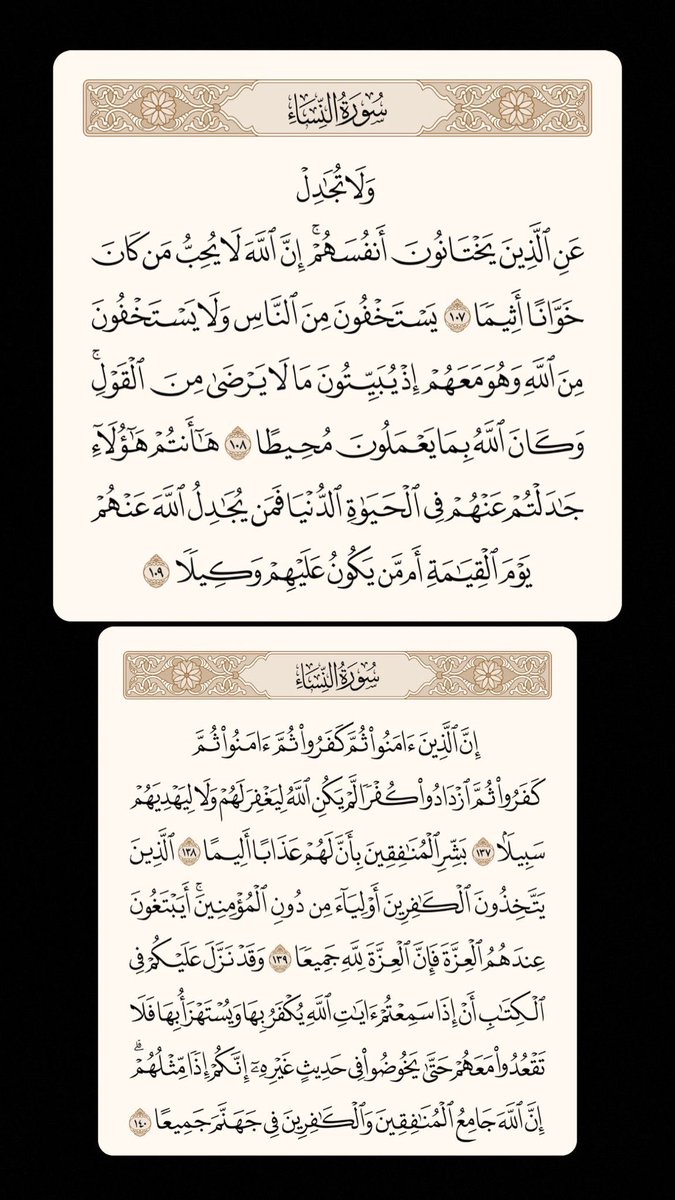 سُورَةُ النِّسَاءِ
وَلَا تُجَٰدِلْ
عَنِ ٱلَّذِينَ يَخْتَانُونَ أَنفُسَهُمْۚ إِنَّ ٱللَّهَ لَا يُحِبُّ مَن كَانَ
خَوَّانًا أَثِيمًا ١٠٧ يَسْتَخْفُونَ مِنَ ٱلنَّاسِ وَلَا يَسْتَخْفُونَ
مِنَ ٱللَّهِ وَهُوَ مَعَهُمْ إِذْ يُبَيِّتُونَ مَا لَا يَرْضَىٰ مِنَ ٱلْقَوْلِۚ
وَكَانَ ٱللَّهُ بِمَا يَعْمَلُونَ مُحِيطًا ١٠٨ هَٰٓأَنتُمْ هَٰٓؤُلَآءِ
جَٰدَلْتُمْ عَنْهُمْ فِى ٱلْحَيَوٰةِ ٱلدُّنْيَا فَمَن يُجَٰدِلُ ٱللَّهَ عَنْهُمْ
يَوْمَ ٱلْقِيَٰمَةِ أَم مَّن يَكُونُ عَلَيْهِمْ وَكِيلًا ١٠٩
سُورَةُ النِّسَاءِ
إِنَّ ٱلَّذِينَ ءَامَنُوا۟ ثُمَّ كَفَرُوا۟ ثُمَّ ءَامَنُوا۟ ثُمَّ
كَفَرُوا۟ ثُمَّ ٱزْدَادُوا۟ كُفْرًا لَّمْ يَكُنِ ٱللَّهُ لِيَغْفِرَ لَهُمْ وَلَا لِيَهْدِيَهُمْ
سَبِيلًۢا ١٣٧ بَشِّرِ ٱلْمُنَٰفِقِينَ بِأَنَّ لَهُمْ عَذَابًا أَلِيمًا ١٣٨ ٱلَّذِينَ
يَتَّخِذُونَ ٱلْكَٰفِرِينَ أَوْلِيَآءَ مِن دُونِ ٱلْمُؤْمِنِينَۚ أَيَبْتَغُونَ
عِندَهُمُ ٱلْعِزَّةَ فَإِنَّ ٱلْعِزَّةَ لِلَّهِ جَمِيعًا ١٣٩ وَقَدْ نَزَّلَ عَلَيْكُمْ فِى
ٱلْكِتَٰبِ أَنْ إِذَا سَمِعْتُمْ ءَايَٰتِ ٱللَّهِ يُكْفَرُ بِهَا وَيُسْتَهْزَأُ بِهَا فَلَا
تَقْعُدُوا۟ مَعَهُمْ حَتَّىٰ يَخُوضُوا۟ فِى حَدِيثٍ غَيْرِهِۦٓ إِنَّكُمْ إِذًا مِّثْلُهُمْۗ
إِنَّ ٱللَّهَ جَامِعُ ٱلْمُنَٰفِقِينَ وَٱلْكَٰفِرِينَ فِى جَهَنَّمَ جَمِيعًا ١٤٠